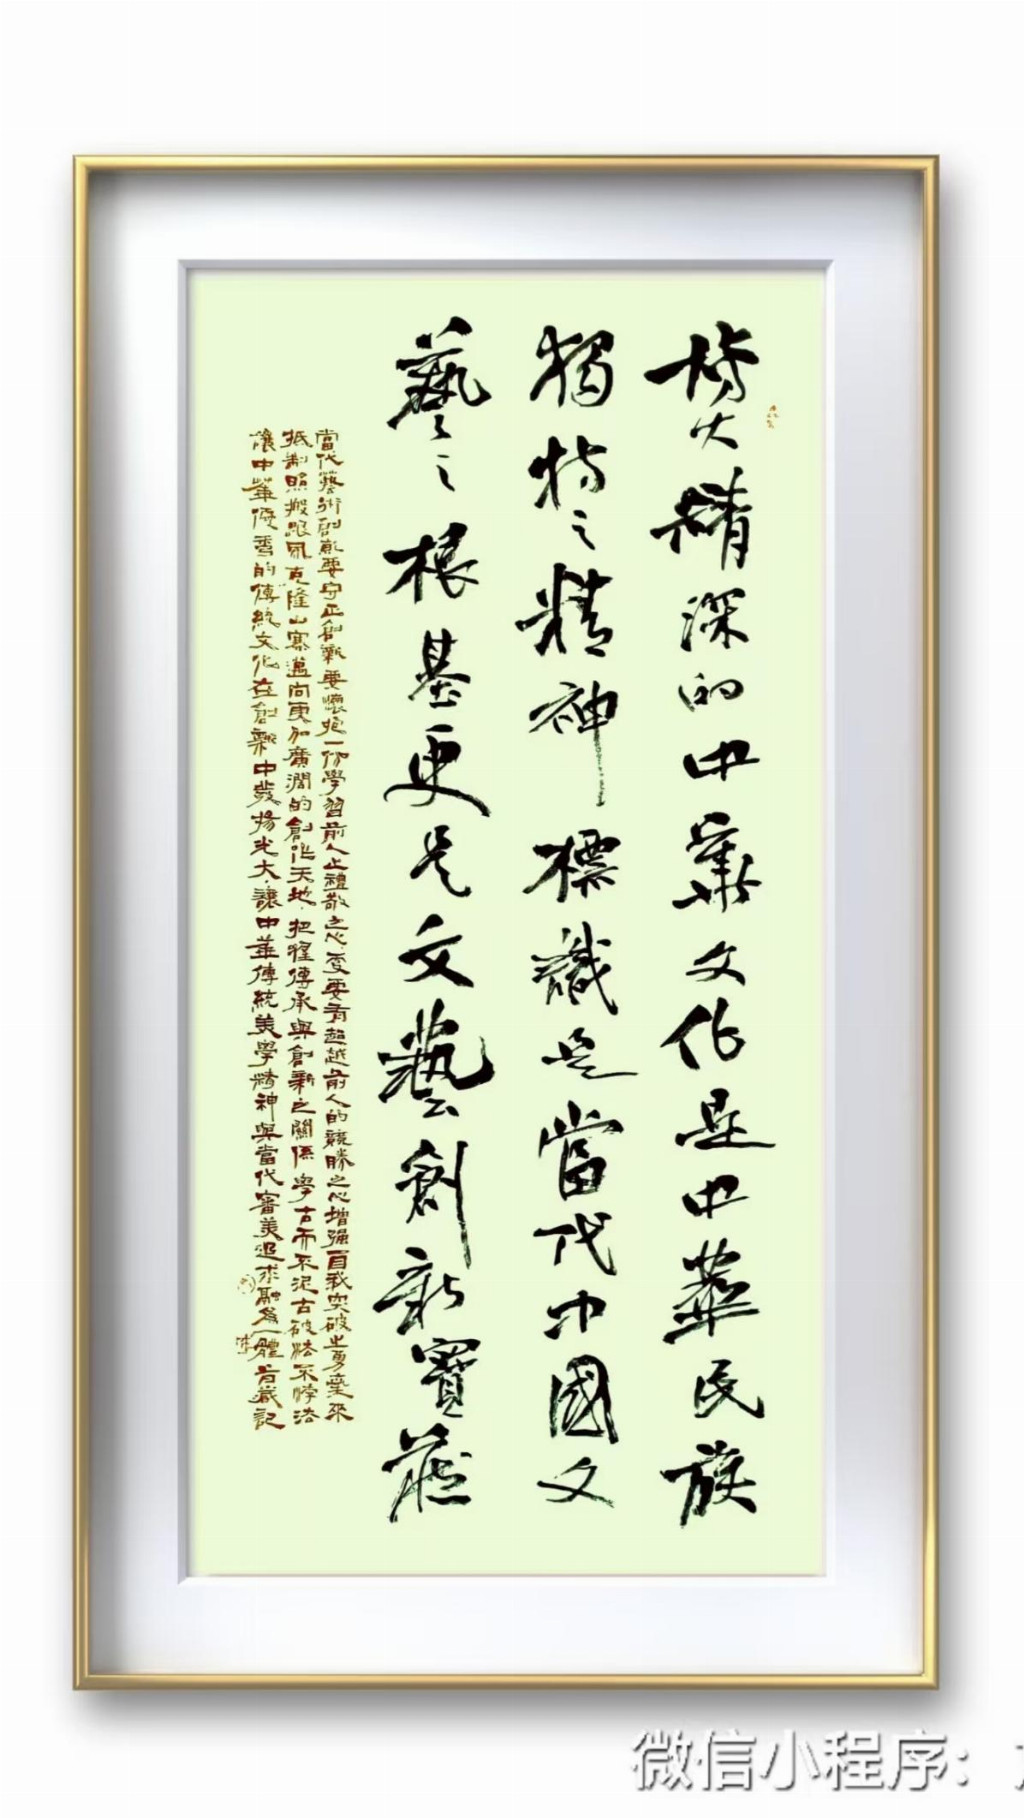 博大精深的中華文化是中華民族
獨特之精神標識是當代中國文
藝之根基更是文藝創新寶藏
當代藝術創新要守正創新要懷抱一份學習前人之禮敬之心更要有超越前人的競勝之心增強自我突破之勇氣來
抵制照搬跟風克隆山寨邁向更加廣闊的創作天地把握傳承與創新之關係學古而不泥古破法不悖法
讓中華優秀的傳統文化在創新中發揚光大讓中華傳統美學精神與當代審美追求融為一體
微信小程序：